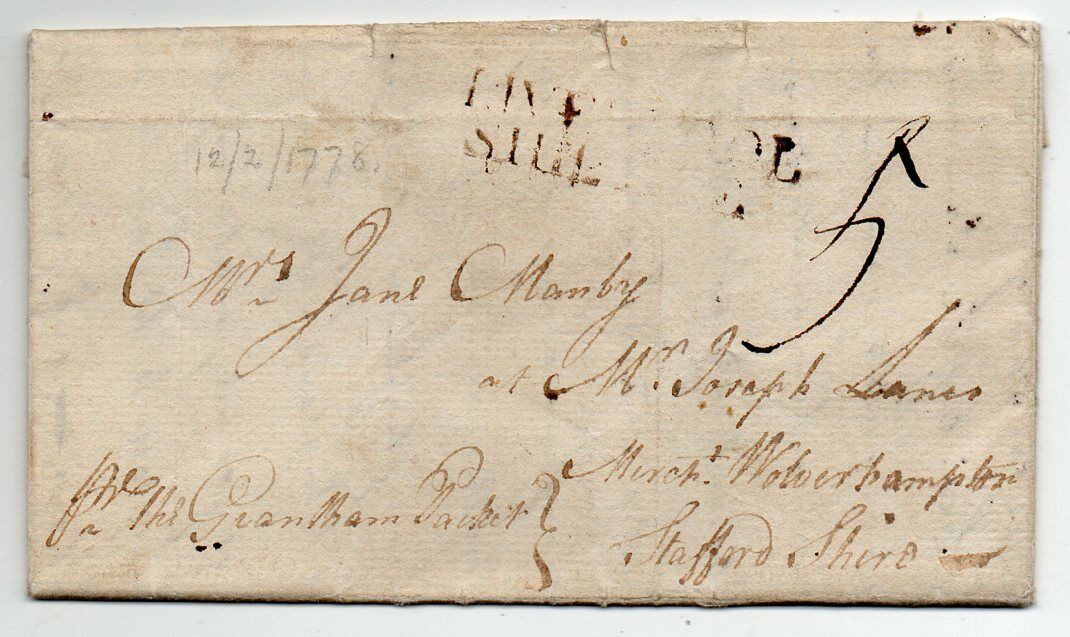 LIVE OL
SHIP
12/2/1778.
5
Mrs Jane Manby
at Mr. Joseph Lanes
Mercht. Wolverhampton
pr the Grantham Packet
Stafford Shire